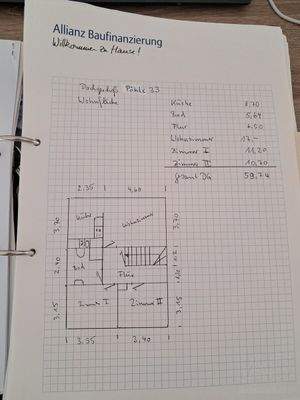 Allianz Baufinanzierung
Willkommen zu Hause!
Dachgeschoß Pöhle 33
Wohnfläche Küche 8,70
Bad 5,64
Flur 6.50
Wohnzimmer 17,-
Zimmer I 11,20
Zimmer II 10,70
gesamt DG 59,74
2,35 4,60
3,70 Küche Wohnzimmer 3,70
2,40 Bad Flur
3,15 Zimmer I Zimmer II 3,15
3,55 3,40